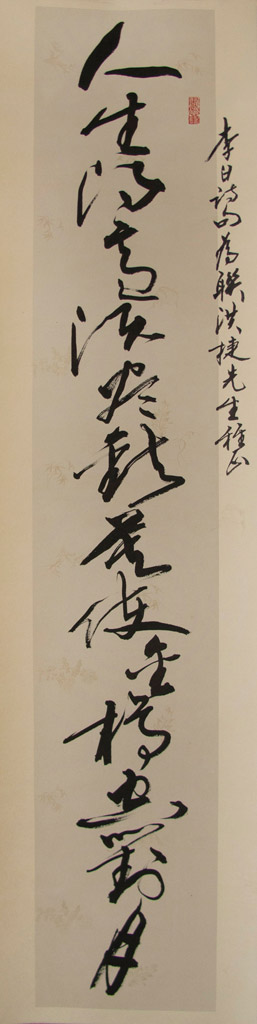 李白詩句為聯洪捷先生雅正
人生得意須尽歡莫使金樽空對月